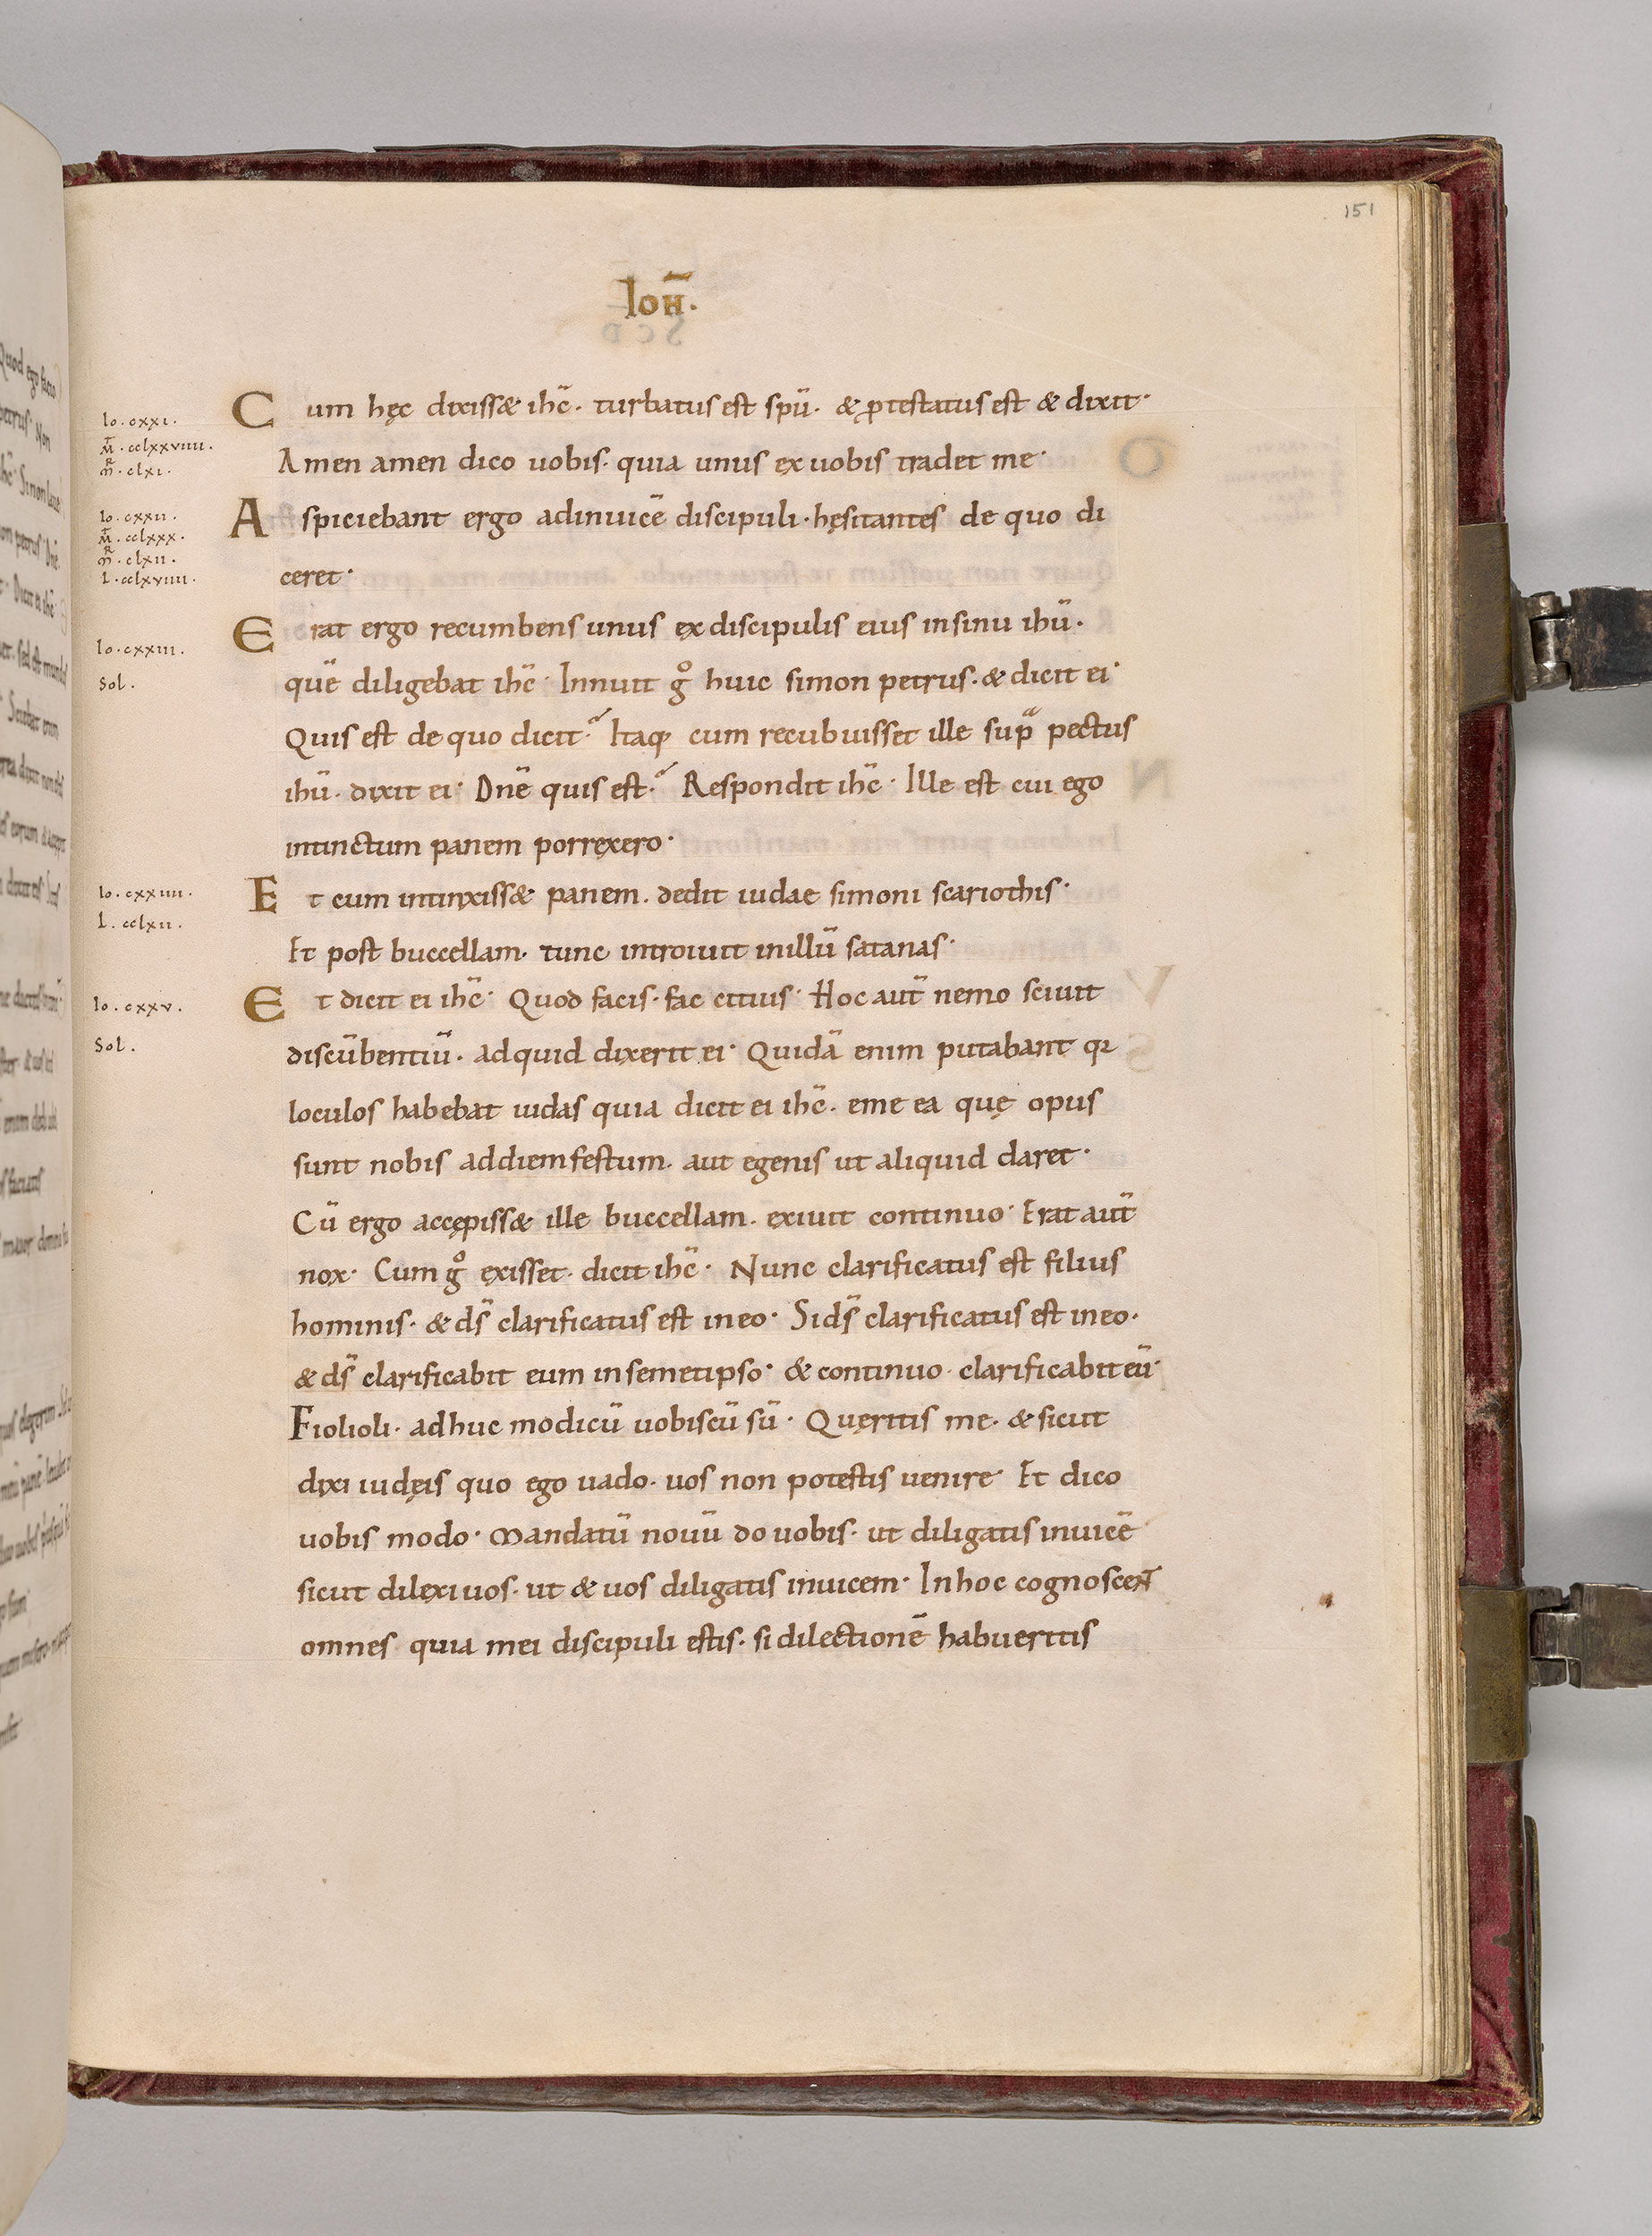 151
Ioh̄.
Io. cxxi.
M̄. cclxxviiii.
mR. clxi.
Cum hęc dixiss& ihc̄. turbatus est spū. & ꝓtestatus est & dixit.
Amen amen dico uobis. quia unus ex uobis tradet me.
Io. cxxii.
M̄. cclxxx.
mR. clxii.
L. cclxviiii.
Aspiciebant ergo adinuicē discipuli. hęsitantes de quo di
ceret.
Io. cxxiii.
Sol.
Erat ergo recumbens unus ex discipulis eius in sinu ihū.
quē diligebat ihc̄. Innuit gͦ huic simon petrus. & dicit ei.
Quis est de quo dicit? Itaq; cum recubuisset ille supͣ pectus
ihū. dixit ei. Dnē quis est? Respondit ihc̄. Ille est cui ego
intinctum panem porrexero.
Io. cxxiiii.
L. cclxii.
Et cum intinxiss& panem. dedit iudae simoni scariothis.
Et post buccellam. tunc introiuit inillū satanas.
Io. cxxv.
Sol.
Et dicit ei ihc̄. Quod facis. fac citius. Hoc aut̄ nemo sciuit
discūbentiū. ad quid dixerit ei. Quidā enim putabant qꝛ
loculos habebat iudas quia dicit ei ihc̄. eme ea quę opus
sunt nobis addiemfestum. aut egenis ut aliquid daret.
Cū ergo accępiss& ille buccellam. exiuit continuo. Erat aut̄
nox. Cum gͦ exisset. dicit ihc̄. Nunc clarificatus est filius
hominis. & ds̄ clarificatus est in eo. Si ds̄ clarificatus est in eo.
& ds̄ clarificabit eum in semetipso. & continuo clarificabit eū.
Fiolioli. adhuc modicū uobiscū sū. Quęritis me. & sicut
dixi iudęis quo ego uado. uos non potestis uenire. Et dico
uobis modo. Mandatū nouū do uobis. ut diligatis inuicē
sicut dilexi uos. ut & uos diligatis inuicem. In hoc cognoscent
omnes quia mei discipuli estis. si dilectionē habueritis